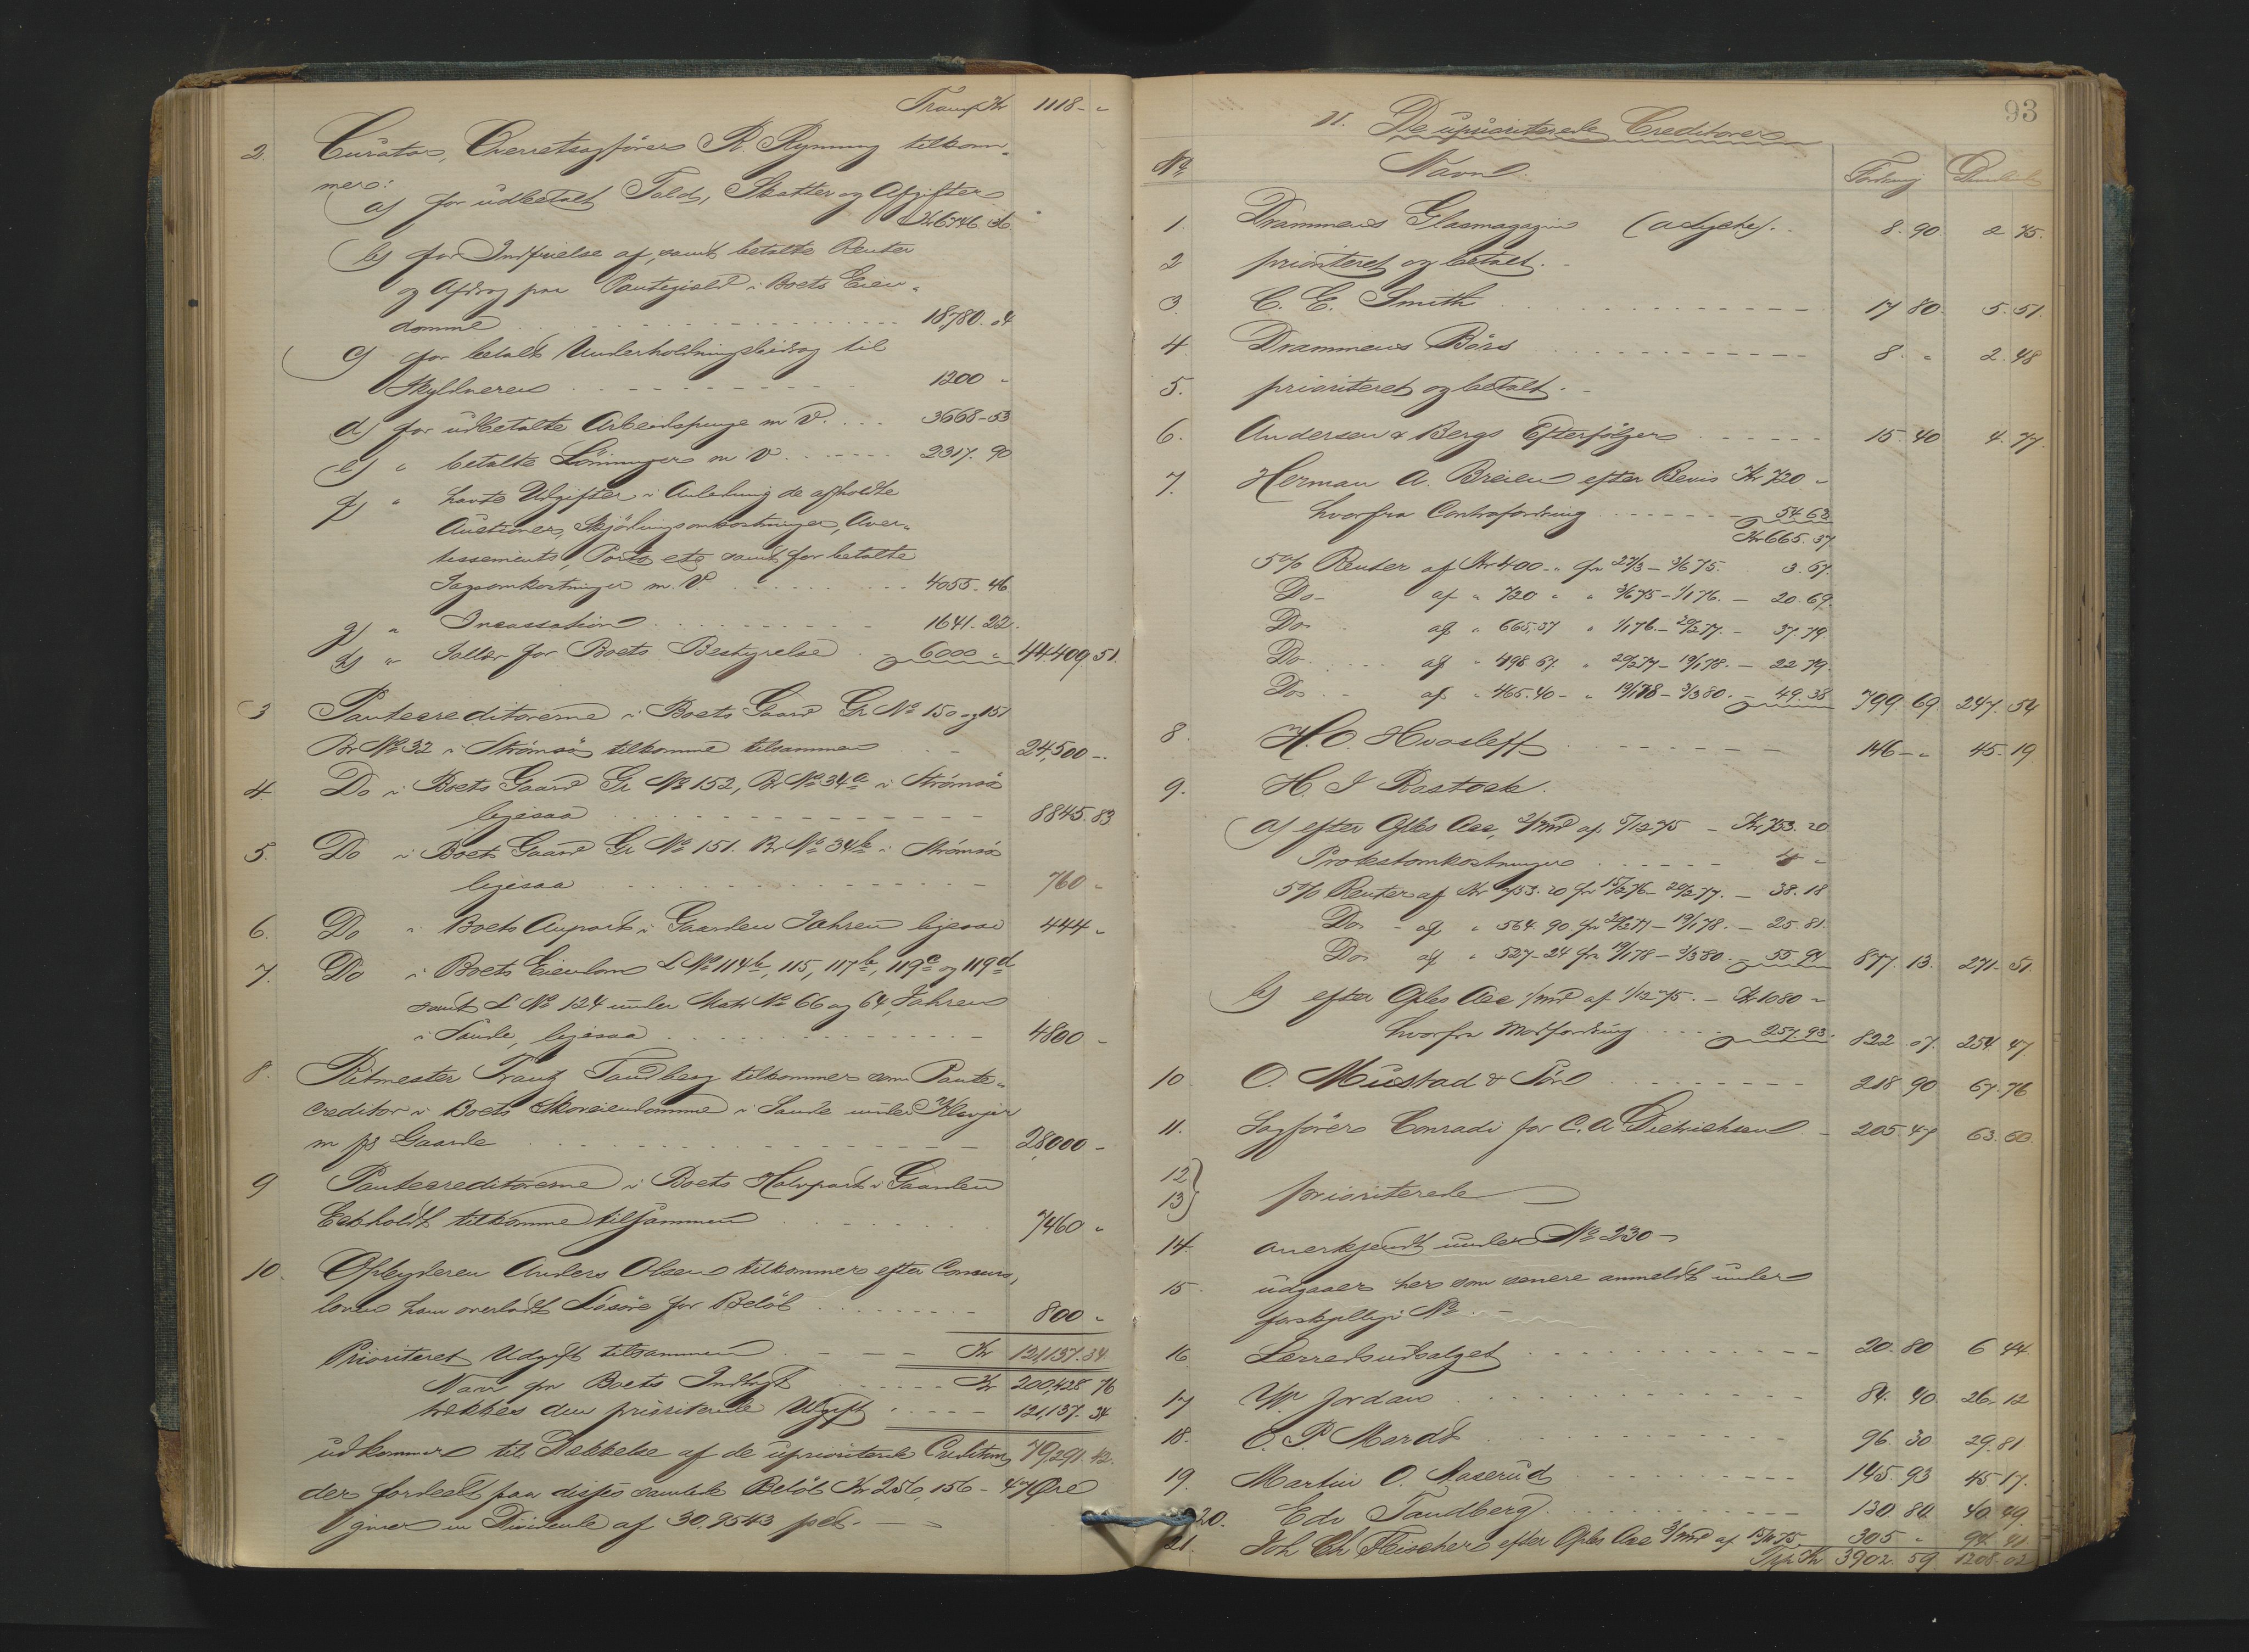 Transp Kr 1118 - "
2. Curator, Overretssagfører R. Rynning tilkom-
mer:
a) for udbetalt Told, Skatter og Afgifter
Kr 6746. 36
b) for Indfrielse af, samt betalte Renter
og Afdrag paa Pantegjeld i Boets Eien-
domme 18,780. 04
c) for betalt Underholdningsbidrag til
Skyldneren 1200 "
d) for udbetalte Arbeidspenge m V. 3668-53
e) " betalte Lönninger m V 2317. 90
f) " havte Udgifter i Anledning de afholdte
Auctioner, Skjödningsomkostninger, Aver-
tissements, Porto etc samt for betalte
Sagsomkostninger m. V. 4055-46
g) " Incassation 1641-22.
h) " Salær for Boets Bestyrelse 6000 " 44,409 51.
3 Pantecreditorerne i Boets Gaard Gr No 150 og 151
Br No 32 i Strömsö tilkomme tilsammen 24,500 -
4. Do i Boets Gaard Gr No 152, Br No 34a i Strömsö
ligesaa 8845. 83
5. Do i Boets Gaard Gr No 151. Br No 34b i Strömsö
ligesaa 760 "
6. Do i Boets Anpart i Gaarden Jahren ligesaa 444 "
7. Do i Boets Eiendom L No 114b, 115, 117b, 119c og 119d
samt L No 124 under Matr No 66 og 64, Jahren
i Sande, ligesaa 4800 -
8. Ritmester Frantz Tandberg tilkommer som Pante-
creditor i Boets Skoveiendomme i Sande under Klevjer
m fl Gaarde 28,000 -
9 Pantecreditorerne i Boets Halvpart i Gaarden
Eekholdt tilkomme tilsammen 7460 "
10. Opbyderen Anders Olsen tilkommer efter Concurs-
loven ham overladt Lösöre for Belöb 800 "
Prioriteret Udgift tilsammen Kr 121,137. 34
Naar fra Boets Indtægt Kr 200,428 76
trækkes den prioriterede Udgift 121,137. 34
udkommer til Dækkelse af de uprioriterede Creditorer 79,291. 42.
der fordeelt paa disses samlede Belöb Kr 256,156 - 47 Öre
giver en Dividende af 30,9543 pCt.
93
II. De uprioriterede Creditorer
No Navn Fordring Dividende
1. Drammens Glasmagazin (A Lyche) 8. 90 2 75.
2 prioriteret og betalt.
3. C. E. Smith 17 80. 5. 51.
4. Drammens Börs 8 " 2. 48
5. prioriteret og betalt.
6. Andersen & Bergs Efterfölger 15. 40 4. 77.
7. Herman A. Breien efter Bevis Kr 720 "
hvorfra Contrafordring 54 63
Kr 665. 37
5 % Renter af Kr 400 " fra 27/3 - 3/6 75. 3. 67.
Do af " 720 " " 3/6 75 - 1/1 76. - 20. 69.
Do af " 665,37 " 1/1 76. - 20/2 77. - 37. 79.
Do af " 498 67. " 20/2 77 - 19/1 78. - 22 79.
Do af " 465. 40 - " 19/1 78 - 3/3 80. - 49. 38 799. 69 247. 54
8. H. O. Hvasleff 146 - " 45-19
9. H. J Rastock.
a) efter Opls Acc, 2/md af 5/12 75 - Kr 753. 20
Protestomkostninger 4 "
5 % Renter af Kr 753. 20 fra 15/2 76 - 20/2 77. - 38. 18
Do af " 564. 90 fra 20/2 77 - 19/1 78. - 25. 81.
Do af " 527-24 fra 19/1 78 - 3/3 80. 55. 94 877. 13. 271-51.
b) efter Opls Acc 1/md af 1/12 75. - Kr 1080 "
hvorfra Modfordring 257. 93. 822. 07. 254 47.
10. O. Mustad & Sön 218 90 67. 76
11. Sagförer Conradi for C. A Dietrichsen 205. 47 63. 60.
12}
13} prioriterede
14. anerkjendt under No 230 -
15. udgaaer her som senere anmeldt under
forskjellige No.
16. Lærredsudsalget 20. 80 6 44
17 W. Jordan 84. 40. 26. 12
18. C. P. Mardt 96. 30. 29. 81
19. Martin O. Aaserud 145. 93 45 17.
20. Edv Tandberg 130. 80. 40. 49.
21. Joh Ch Fleischer efter Opls Acc 3/md af 15/11 75. 305 " 94. 41
Tsp. Kr 3902. 59. 1208. 02